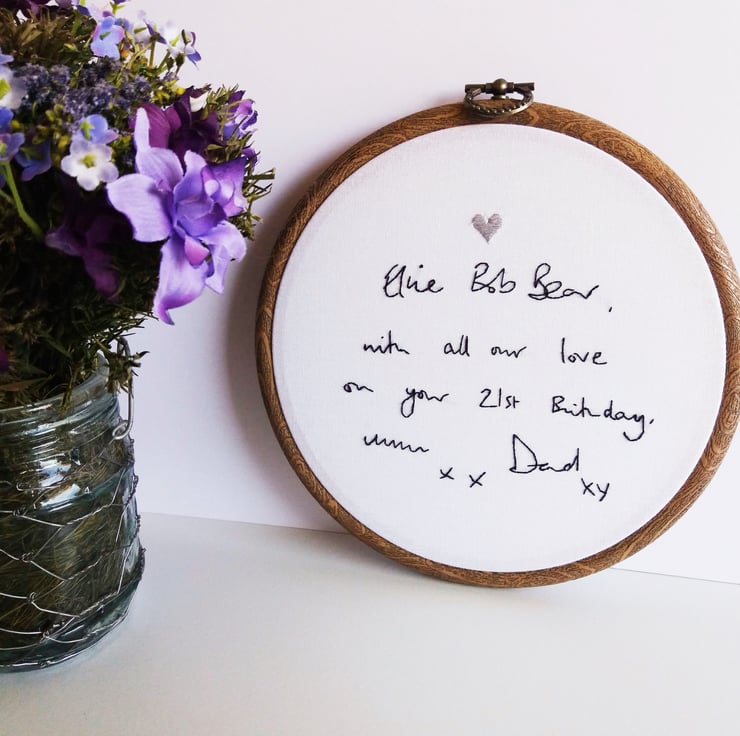 Ellie Bob Bear,
with all our love
on your 21st Birthday.
mum x x Dad xy